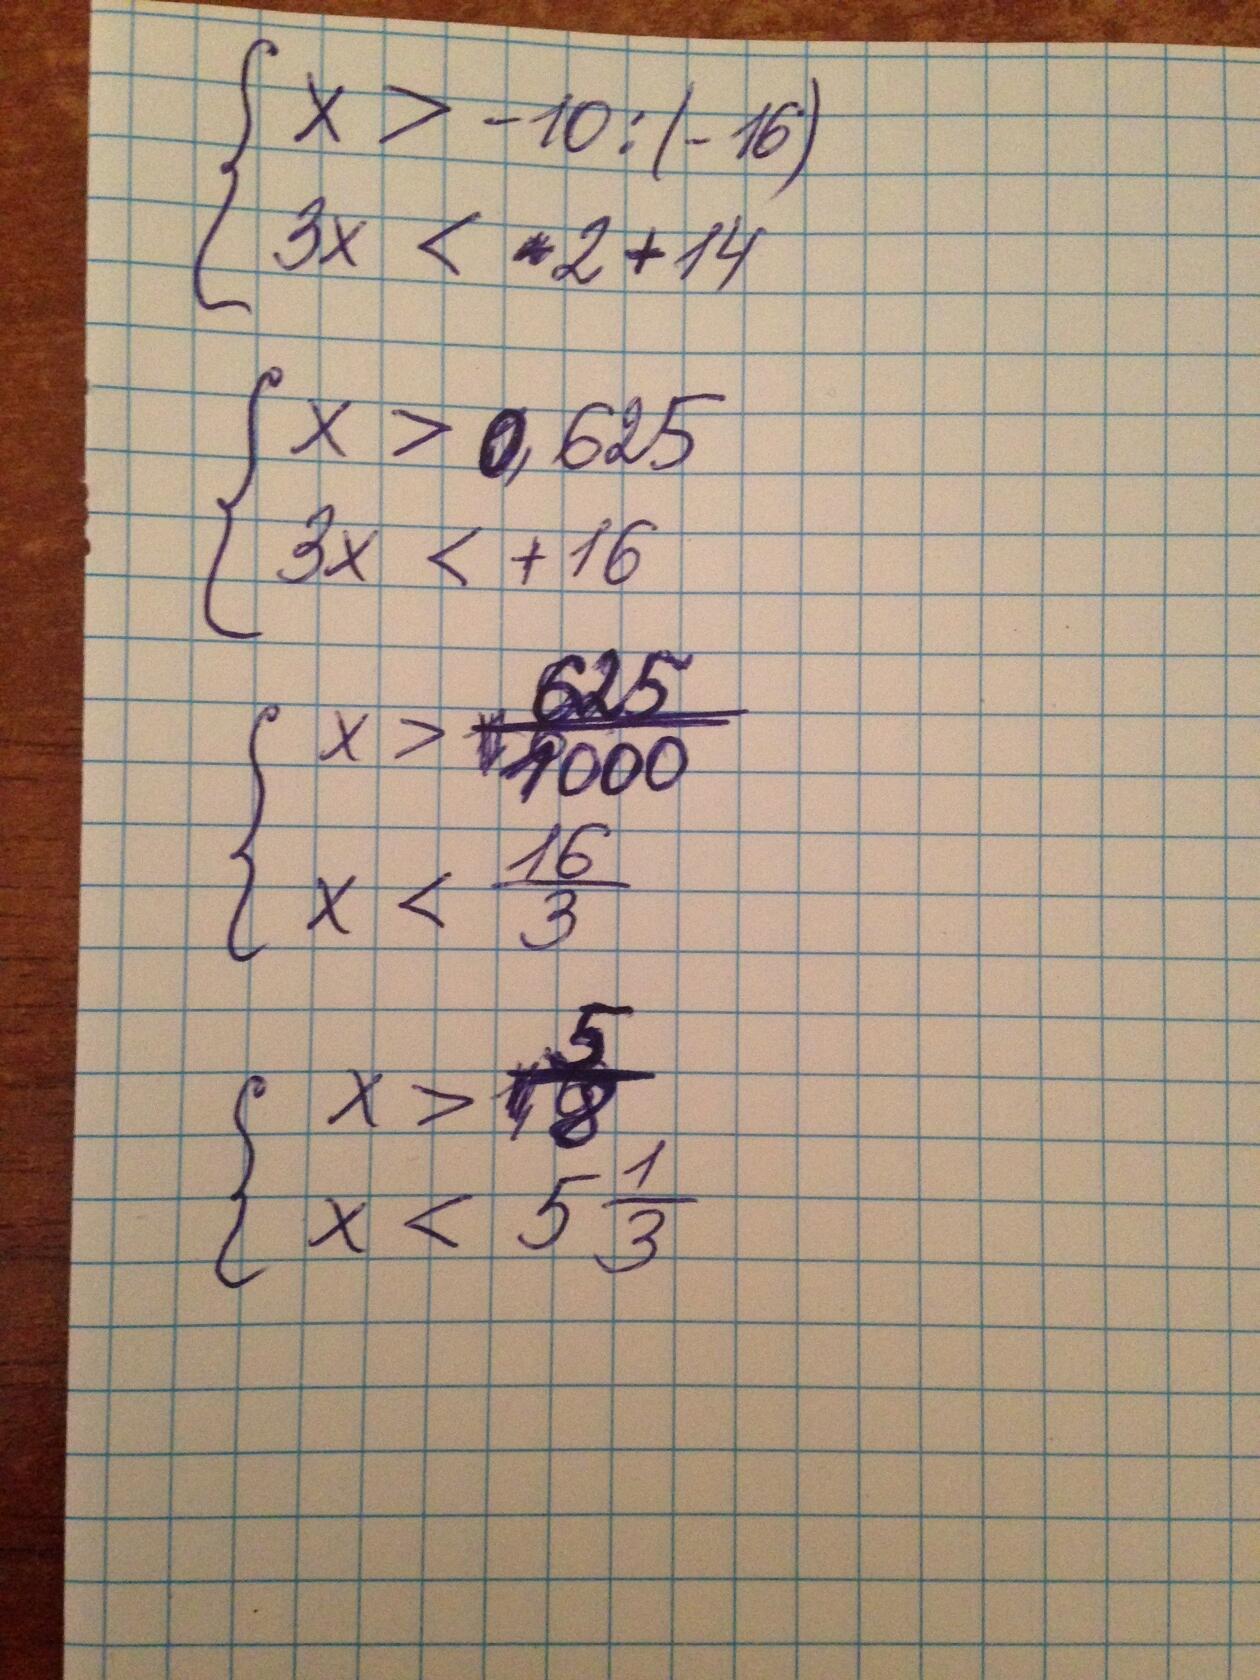 x > -10:(-16)
3x < -2+14
x > 0,625
3x < +16
x > 625/1000
x < 16/3
x > 5/8
x < 5 1/3